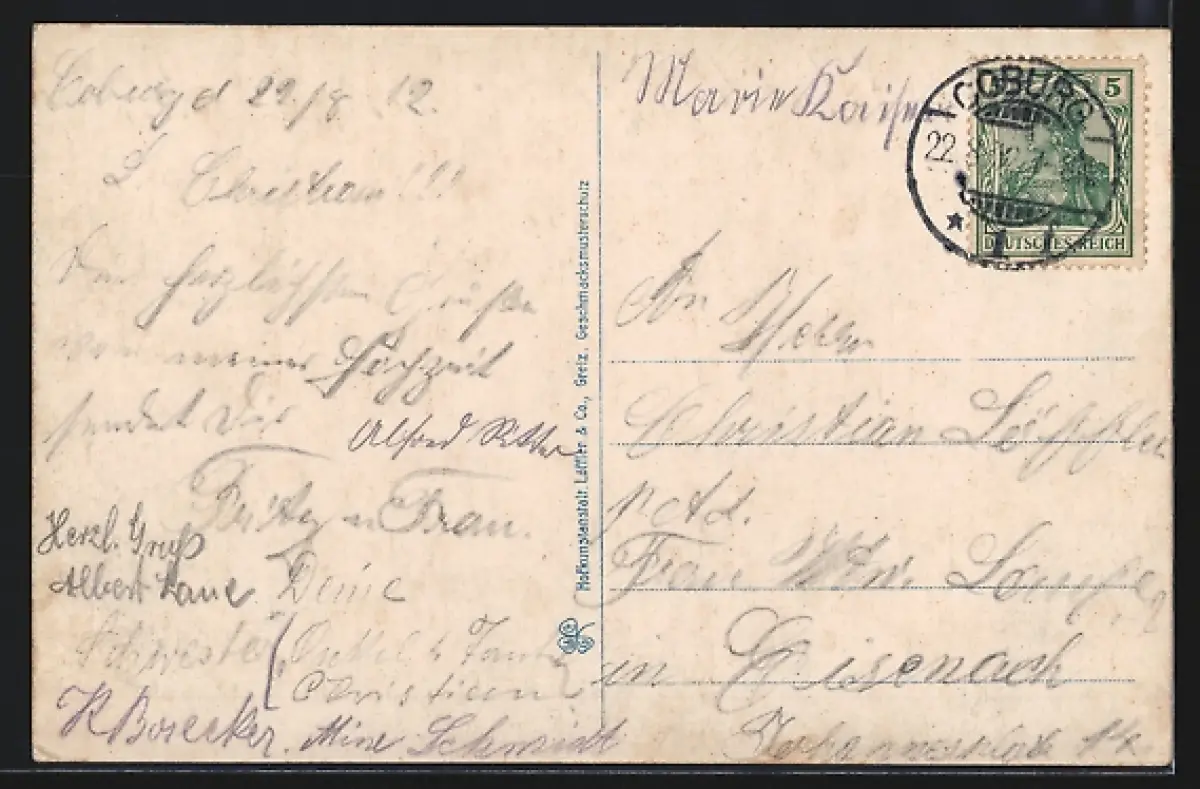 Coburg d 22/8 12.
L Christian!!!
Die herzlichsten Grüße
von meiner Hochzeit
sendet Dir
Alfred
Fritz u Frau.
Herzl. Gruß
Albert Deine
Schwester (Onkel & Tante
Christian
K Bosecker. Mine Schmidt
Hofkunstanstalt Löffler & Co., Greiz. Geschmacksmusterschutz
Marie Kaiser
COBURG
22. 8. 12
* 1
5
DEUTSCHES REICH
An Herrn
Christian Löffler
p. Ad.
Frau Wtw.
in Eisenach